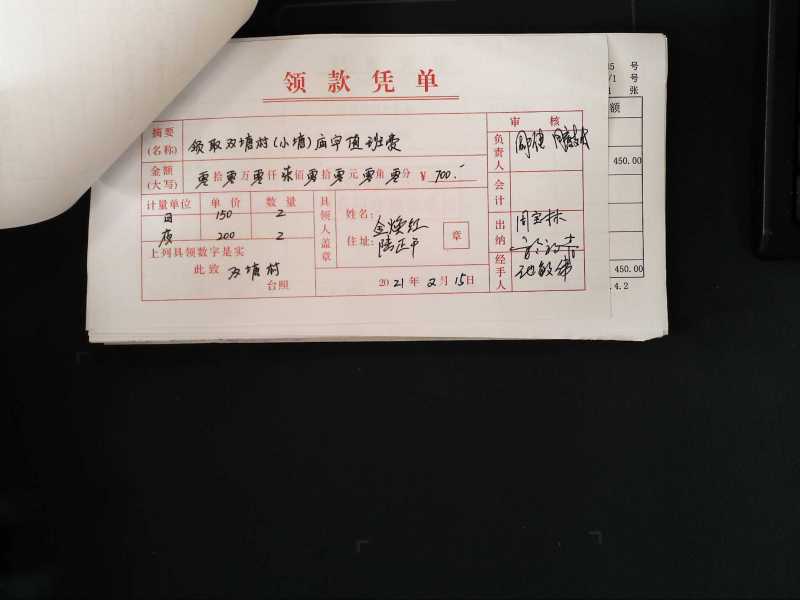 领款凭单
摘要(名称) 领取双塘村(小塘)庙守值班费
金额(大写) 零拾零万零仟柒佰零拾零元零角零分 ¥700.-
计量单位 单价 数量
日 150 2
夜 200 2
上列具领数字是实
此致 双塘村
台照
具领人盖章
姓名: 金焕红
住址: 陆正平
章
2021年2月15日
审核
负责人
会计
出纳 周宝林
经手人
号
号
张
额
450.00
450.00
.4.2